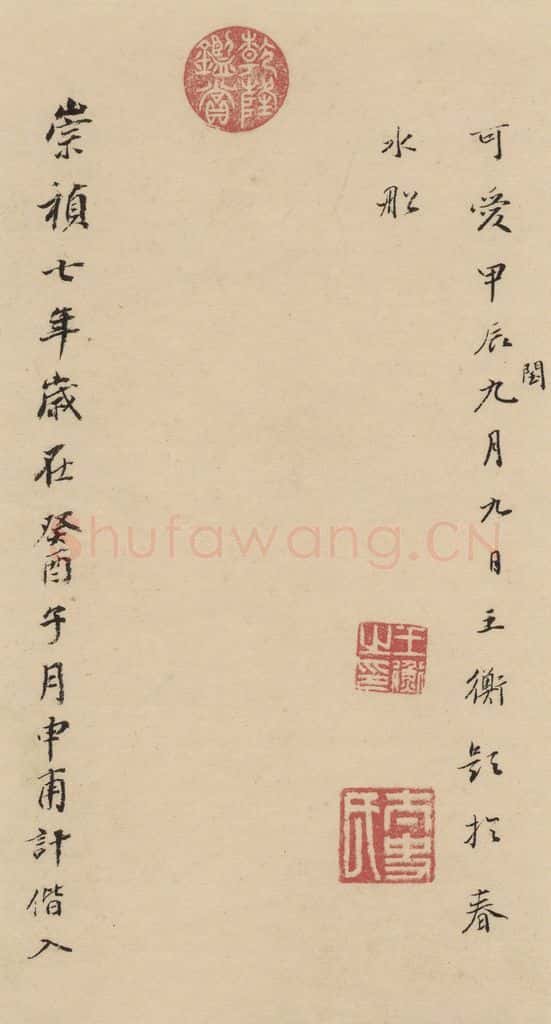 可愛甲辰閏九月九日王衡題扵春
水舩
王衡之印
乾隆鑑賞
崇禎七年歲在癸酉午月申甫計偕入
Shufawang.CN